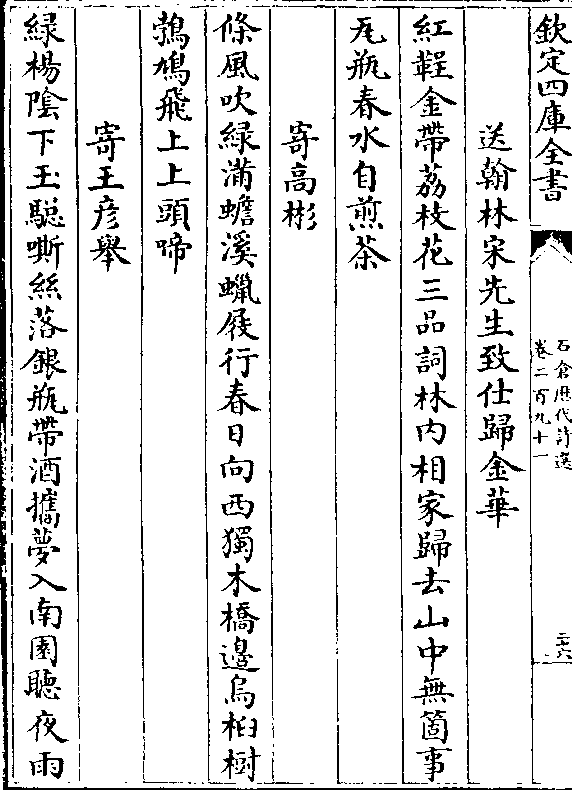 欽定四庫全書
石倉歷代詩選
卷二百九十一
三十六
送翰林宋先生致仕歸金華
紅鞓金帶荔枝花三品詞林内相家歸去山中無箇事
瓦瓶春水自煎茶
寄高彬
條風吹緑滿蟾溪蠟屐行春日向西獨木橋邊烏桕樹
鵓鳩飛上上頭啼
寄王彦舉
緑楊陰下玉驄嘶絲落銀瓶帶酒攜夢入南園聽夜雨